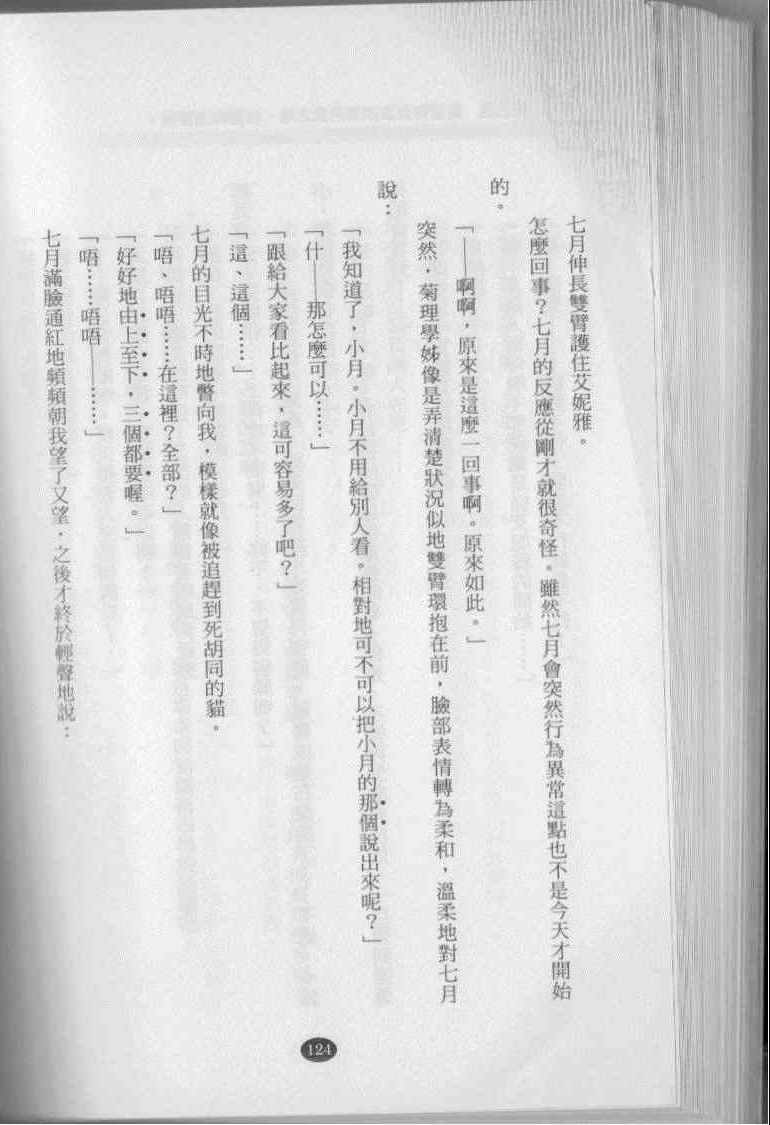 七月伸長雙臂護住艾妮雅。
怎麼回事？七月的反應從剛才就很奇怪。雖然七月會突然行為異常這點也不是今天才開始
的。
「——啊啊，原來是這麼一回事啊。原來如此。」
突然，菊理學姊像是弄清楚狀況似地雙臂環抱在前，臉部表情轉為柔和，溫柔地對七月
說：
「我知道了，小月。小月不用給別人看。相對地可不可以把小月的那個說出來呢？」
「什——那怎麼可以……」
「跟給大家看比起來，這可容易多了吧？」
「這、這個……」
七月的目光不時地瞥向我，模樣就像被追趕到死胡同的貓。
「唔、唔唔……在這裡？全部？」
「好好地由上至下，三個都要喔。」
「唔……唔唔————……」
七月滿臉通紅地頻頻朝我望了又望，之後才終於輕聲地說：
124